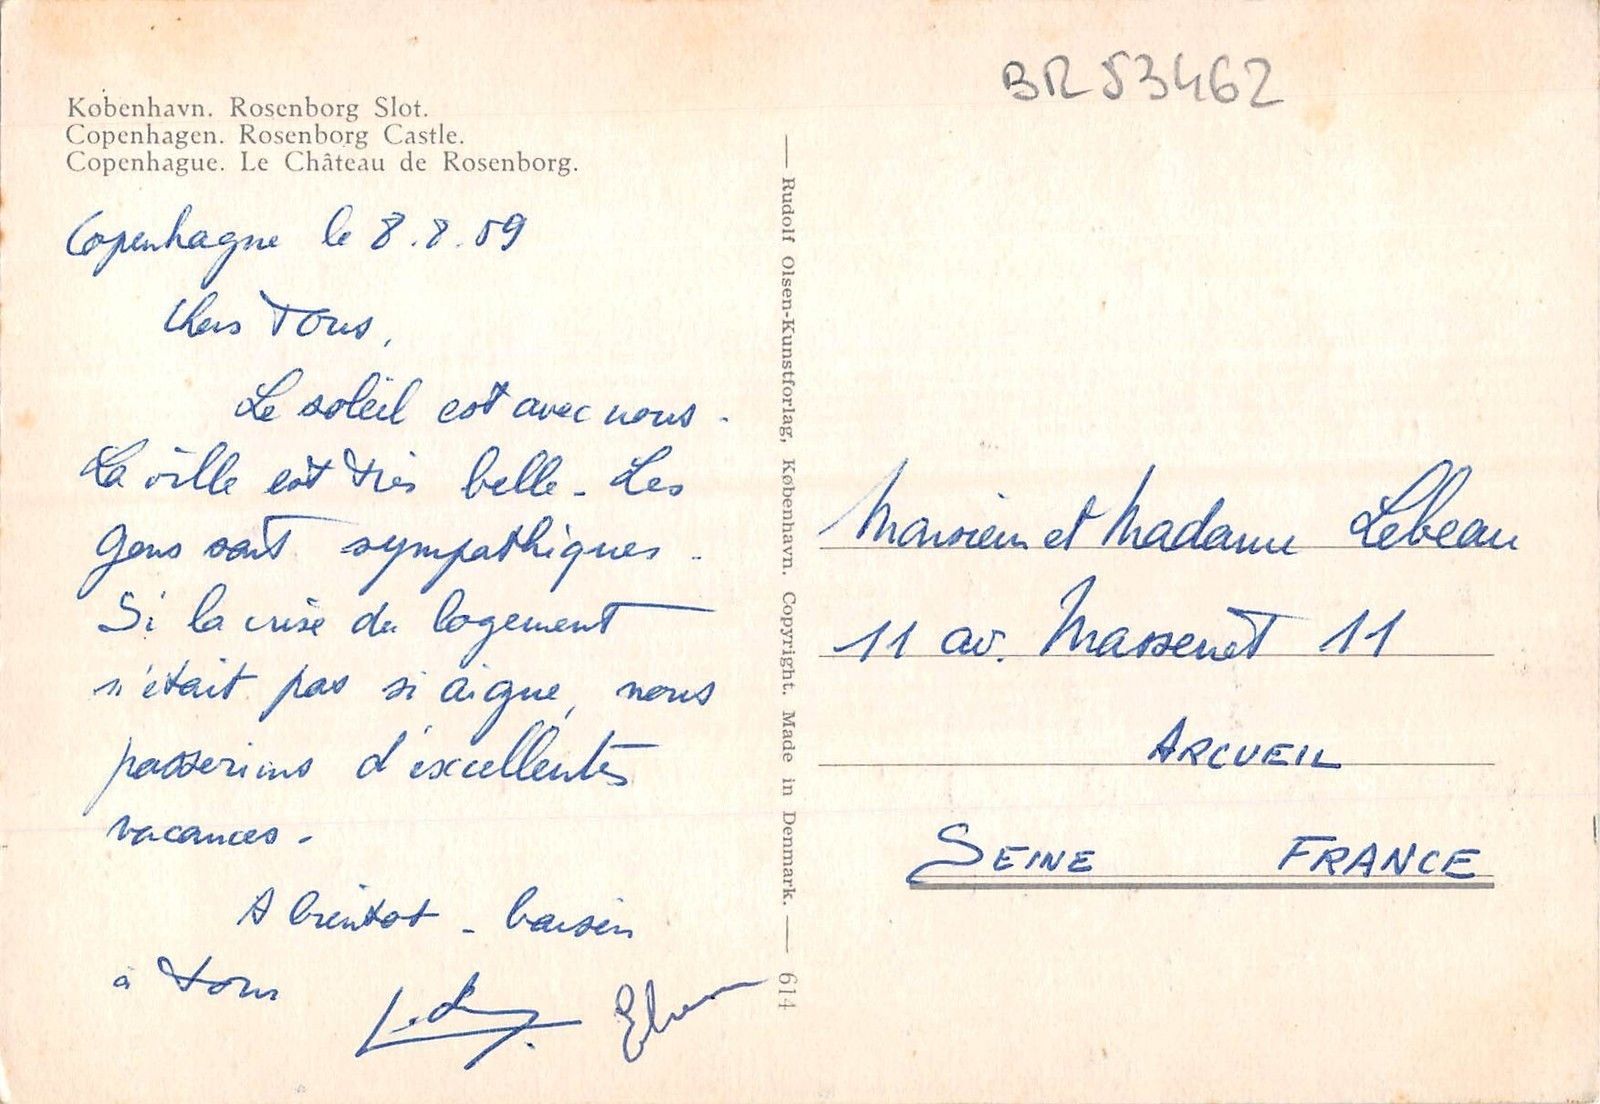 BR 53462
København. Rosenborg Slot.
Copenhagen. Rosenborg Castle.
Copenhague. Le Château de Rosenborg.
Copenhague le 8.8.59
Chers Tous,
Le soleil est avec nous -
La ville est très belle - Les
gens sont sympathiques -
Si la crise du logement
n'était pas si aigue, nous
passerions d'excellentes
vacances -
A bientot - baisers
à tous
Rudolf Olsen-Kunstforlag, København. Copyright. Made in Denmark. — 614
Monsieur et Madame Lebeau
11 av. Massenet 11
ARCUEIL
SEINE FRANCE